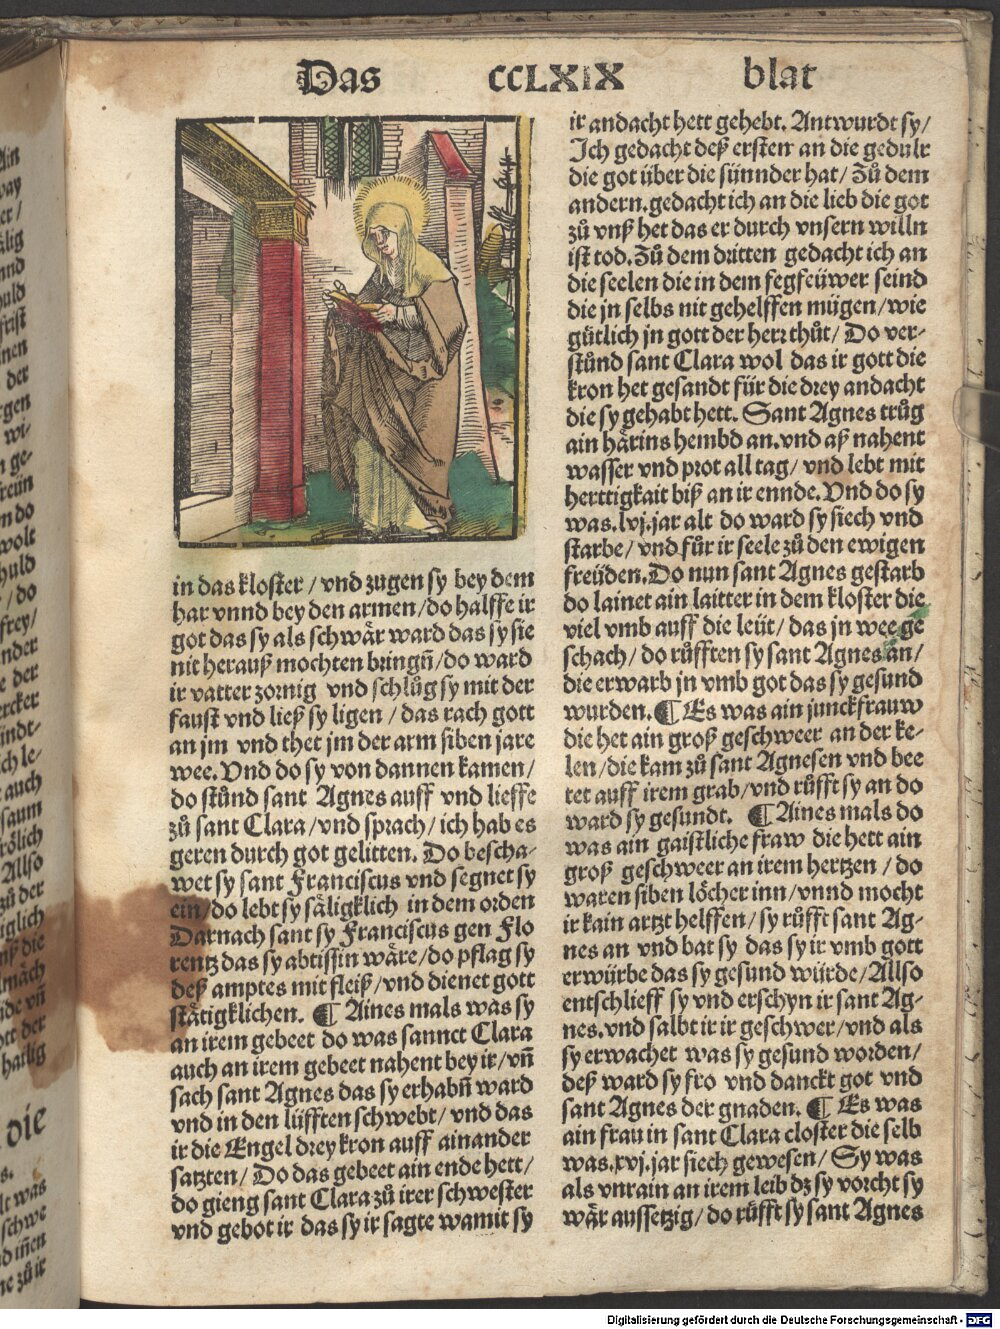 Das CCLXIX blat
in das kloster / vnd zugen sy bey dem
har vnnd bey den armen / do halffe ir
got das sy als schwår ward das sy sie
nit herauß mochten bringñ / do ward
ir vatter zornig vnd schlůg sy mit der
faust vnd ließ sy ligen / das rach gott
an jm vnd thet jm der arm siben jare
wee. Vnd do sy von dannen kamen /
do stůnd sant Agnes auff vnd lieffe
zů sant Clara / vnd sprach / ich hab es
geren durch got gelitten. Do bescha-
wet sy sant Franciscus vnd segnet sy
ein / do lebt sy såligklich in dem orden
Darnach sant sy Franciscus gen Flo
rentz das sy abtissin wåre / do pflag sy
deß amptes mit fleiß / vnd dienet gott
ståtigklichen. ¶ Aines mals was sy
an irem gebeet do was sannct Clara
auch an irem gebeet nahent bey ir / vñ
sach sant Agnes das sy erhabñ ward
vnd in den lüfften schwebt / vnd das
ir die Engel drey kron auff ainander
satzten / Do das gebeet ain ende hett /
do gieng sant Clara zů irer schwester
vnd gebot ir das sy ir sagte wamit sy
ir andacht hett gehebt. Antwurdt sy /
Ich gedacht deß ersten an die gedult
die got über die sünnder hat / Zů dem
andern. gedacht ich an die lieb die got
zů vnß het das er durch vnsern willn
ist tod. Zů dem dritten gedacht ich an
die seelen die in dem fegfeüwer seind
die jn selbs nit gehelffen mügen / wie
gütlich jn gott der herr thůt / Do ver-
stůnd sant Clara wol das ir gott die
kron het gesandt für die drey andacht
die sy gehabt hett. Sant Agnes trůg
ain hårins hembd an. vnd aß nahent
wasser vnd prot all tag / vnd lebt mit
herttigkait biß an ir ennde. Vnd do sy
was. lvj. jar alt do ward sy siech vnd
starbe / vnd fůr ir seele zů den ewigen
freüden. Do nun sant Agnes gestarb
do lainet ain laitter in dem kloster die
viel vmb auff die leüt / das jn wee ge
schach / do růfften sy sant Agnes an /
die erwarb jn vmb got das sy gesund
wurden. ¶ Es was ain junckfrauw
die het ain groß geschweer an der ke-
len / die kam zů sant Agnesen vnd bee
tet auff irem grab / vnd růfft sy an do
ward sy gesundt. ¶ Aines mals do
was ain gaistliche fraw die hett ain
groß geschweer an irem hertzen / do
waren siben löcher inn / vnnd mocht
ir kain artzt helffen / sy růfft sant Ag-
nes an vnd bat sy das sy ir vmb gott
erwürbe das sy gesund würde / Allso
entschlieff sy vnd erschyn ir sant Ag-
nes. vnd salbt ir ir geschwer / vnd als
sy erwachet was sy gesund worden /
deß ward sy fro vnd danckt got vnd
sant Agnes der gnaden. ¶ Es was
ain frau in sant Clara closter die selb
was. xvj. jar siech gewesen / Sy was
als vnrain an irem leib dz sy vorcht sy
wår aussetzig / do růfft sy sant Agnes
Digitalisierung gefördert durch die Deutsche Forschungsgemeinschaft - DFG